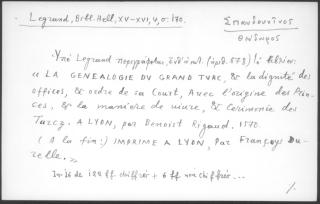 Legrand, Bibl. Hell, XV-XVI, IV, σ. 170.
Σπανδουνῖνος
Θεόδωρος
Ὑπὸ Legrand περιγράφεται, (ἀριθ. 553) τὸ βιβλίον:
« LA GENEALOGIE DU GRAND TURC, & la dignité des
offices, & ordre de sa Court, Avec l'origine des Prin-
ces, & la maniere de vivre, & Cerimonie des
Turcz. A LYON, par Benoist Rigaud. 1570.
(A la fin:) IMPRIME A LYON, Par Françoys Du-
relle. »
In-16 de 122 ff chiffrés + 6 ff non chiffrés...
%